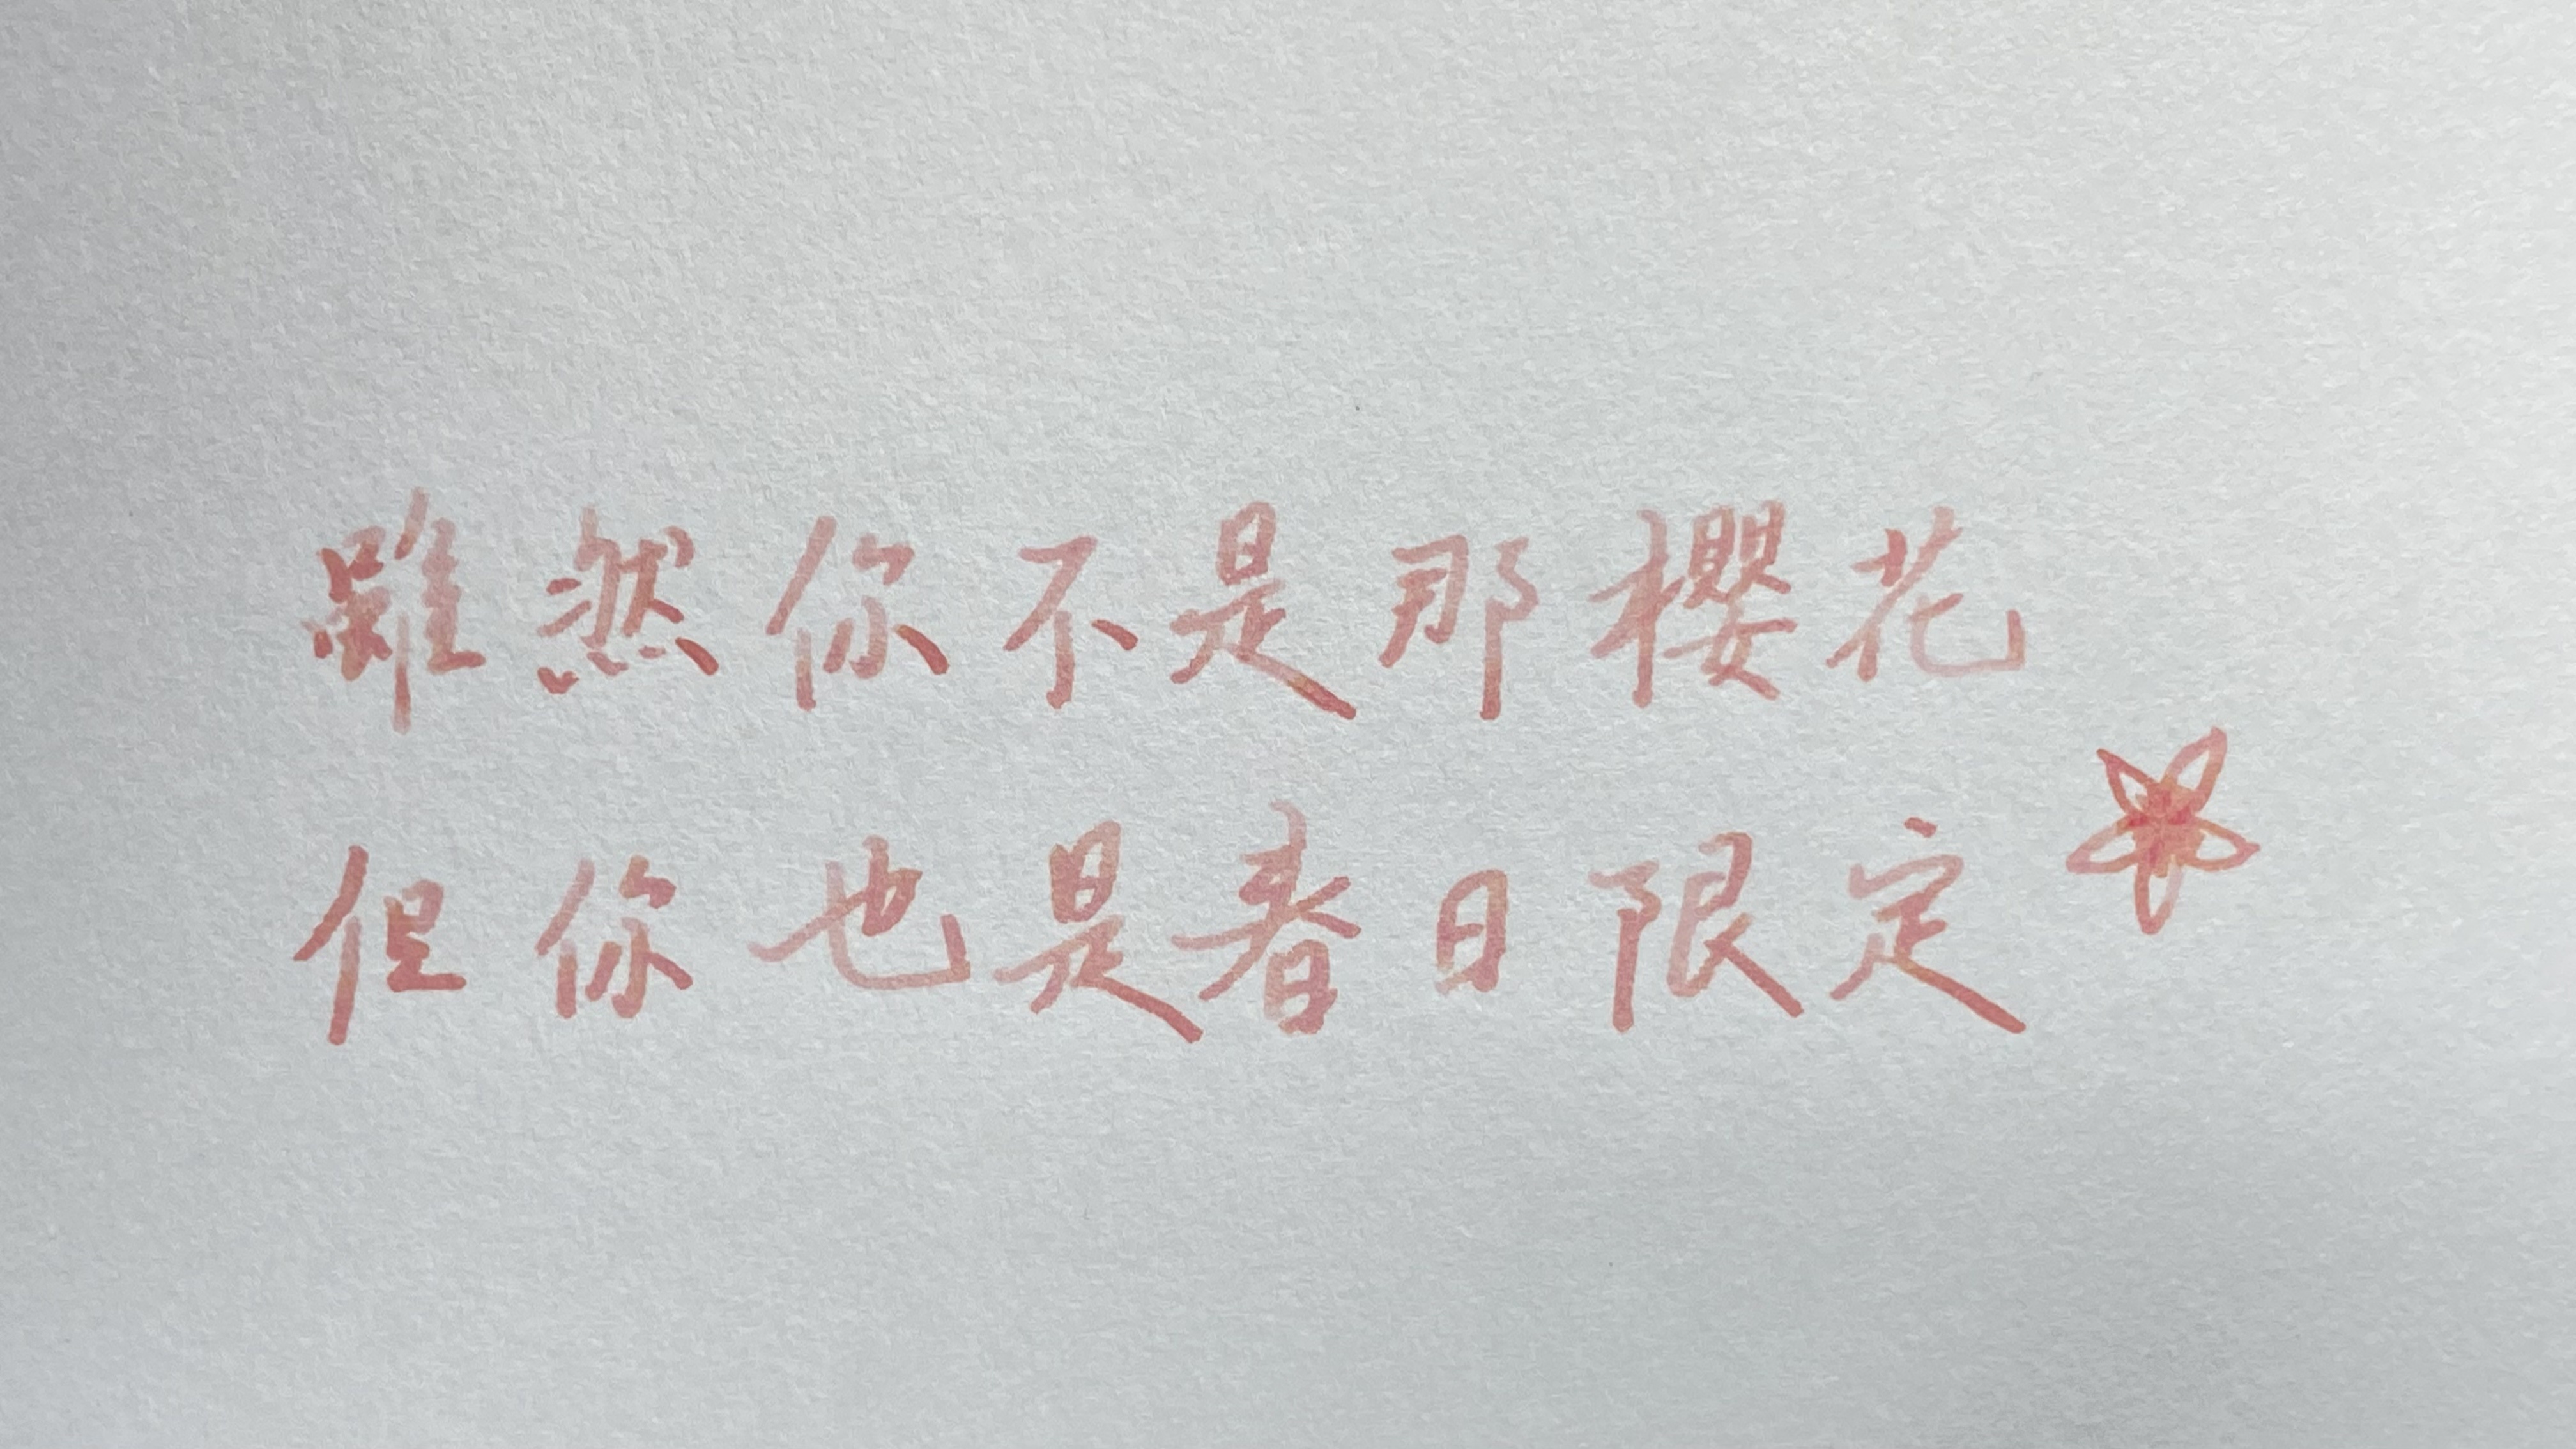 雖然你不是那櫻花
但你也是春日限定